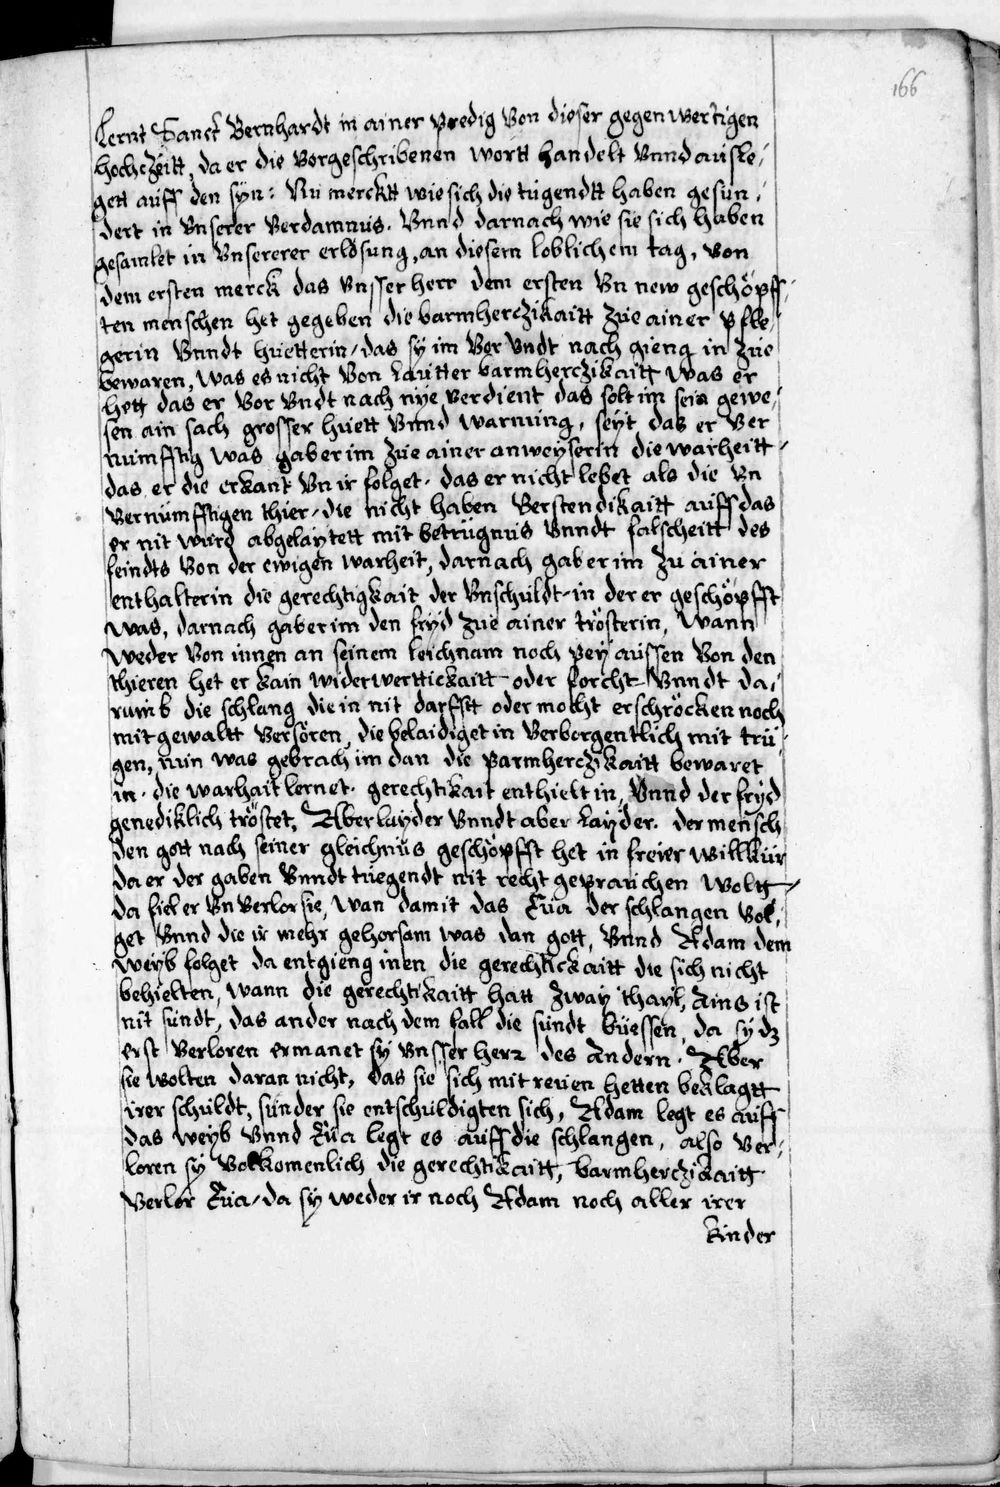 166
Lernt Sanct Bernhardt in ainer predig von dieser gegenwertigen
hochczeitt, da er die vorgeschribenen wortt handelt vnnd ausle⸗
gett auff den syn: Nu mercktt wie sich die tugendtt haben gesun⸗
dert in vnserer verdamnus. Vnnd darnach wie sie sich haben
gesamlet in vnsererer erlösung, an diesem loblichem tag, von
dem ersten merck das vnsser herr dem ersten vn new geschöpff⸗
ten menschen het gegeben die barmherczikaitt zue ainer pfle⸗
gerin vnndt huetterin, das sy im vor vndt nach gieng in zue
bewaren, was es nicht von lautter barmherczikaitt was er
hett das er vor vndt nach nye verdient das solt im sein gewe⸗
sen ain sach grosser huett vnnd warnung, seyt das er ver
numfftig was gab er im zue ainer anweyserin die warheitt
das er die erkant vn ir folget. das er nicht lebet als die vn
vernumfftigen thier, die nicht haben verstendikaitt auff das
er nit wurd abgelaytett mit betrugnus vnndt falscheitt des
feindts von der ewigen warheit, darnach gab er im zu ainer
enthalterin die gerechtigkait der vnschuldt in der er geschöpfft
was, darnach gab er im den fryd zue ainer trösterin, wann
weder von innen an seinem leichnam noch pey aussen von den
thieren het er kain widerwerttickaitt oder forcht vnndt da⸗
rumb die schlang die in nit darfftt oder mocht erschröcken noch
mit gewaltt versören, die belaidiget in verborgentlich mit tru⸗
gen, nun was gebrach im dan die parmherczikaitt bewaret
in. die warhait lernet. gerechtikait enthielt in vnnd der fryd
genediklich tröstet, Aber layder vnndt aber layder. der mensch
den gott nach seiner gleichnus geschöpfft het in freier willkür
da er der gaben vnndt tuegendt nit recht geprauchen woltt
da fiel er vn verlor sie, wan damit das Eua der schlangen vol⸗
get vnnd die ir mehr gehorsam was dan gott, vnnd Adam dem
weyb folget da entgieng inen die gerechtickaitt die sich nicht
behielten, wann die gerechtikaitt hatt zway thayl, Ains ist
nit sundt, das ander nach dem fall die sundt büessen, da sy dz
erst verloren ermanet sy vnsser herr des andern. Aber
sie wolten daran nicht, das sie sich mit reuen hetten beklagtt
irer schuldt, sunder sie entschuldigten sich, Adam legt es auff
das weyb vnnd Eua legt es auff die schlangen, also ver⸗
loren sy volkomenlich die gerechtikaitt, barmherczikaitt
verlor Eua, da sy weder ir noch Adam noch aller irer
kinder